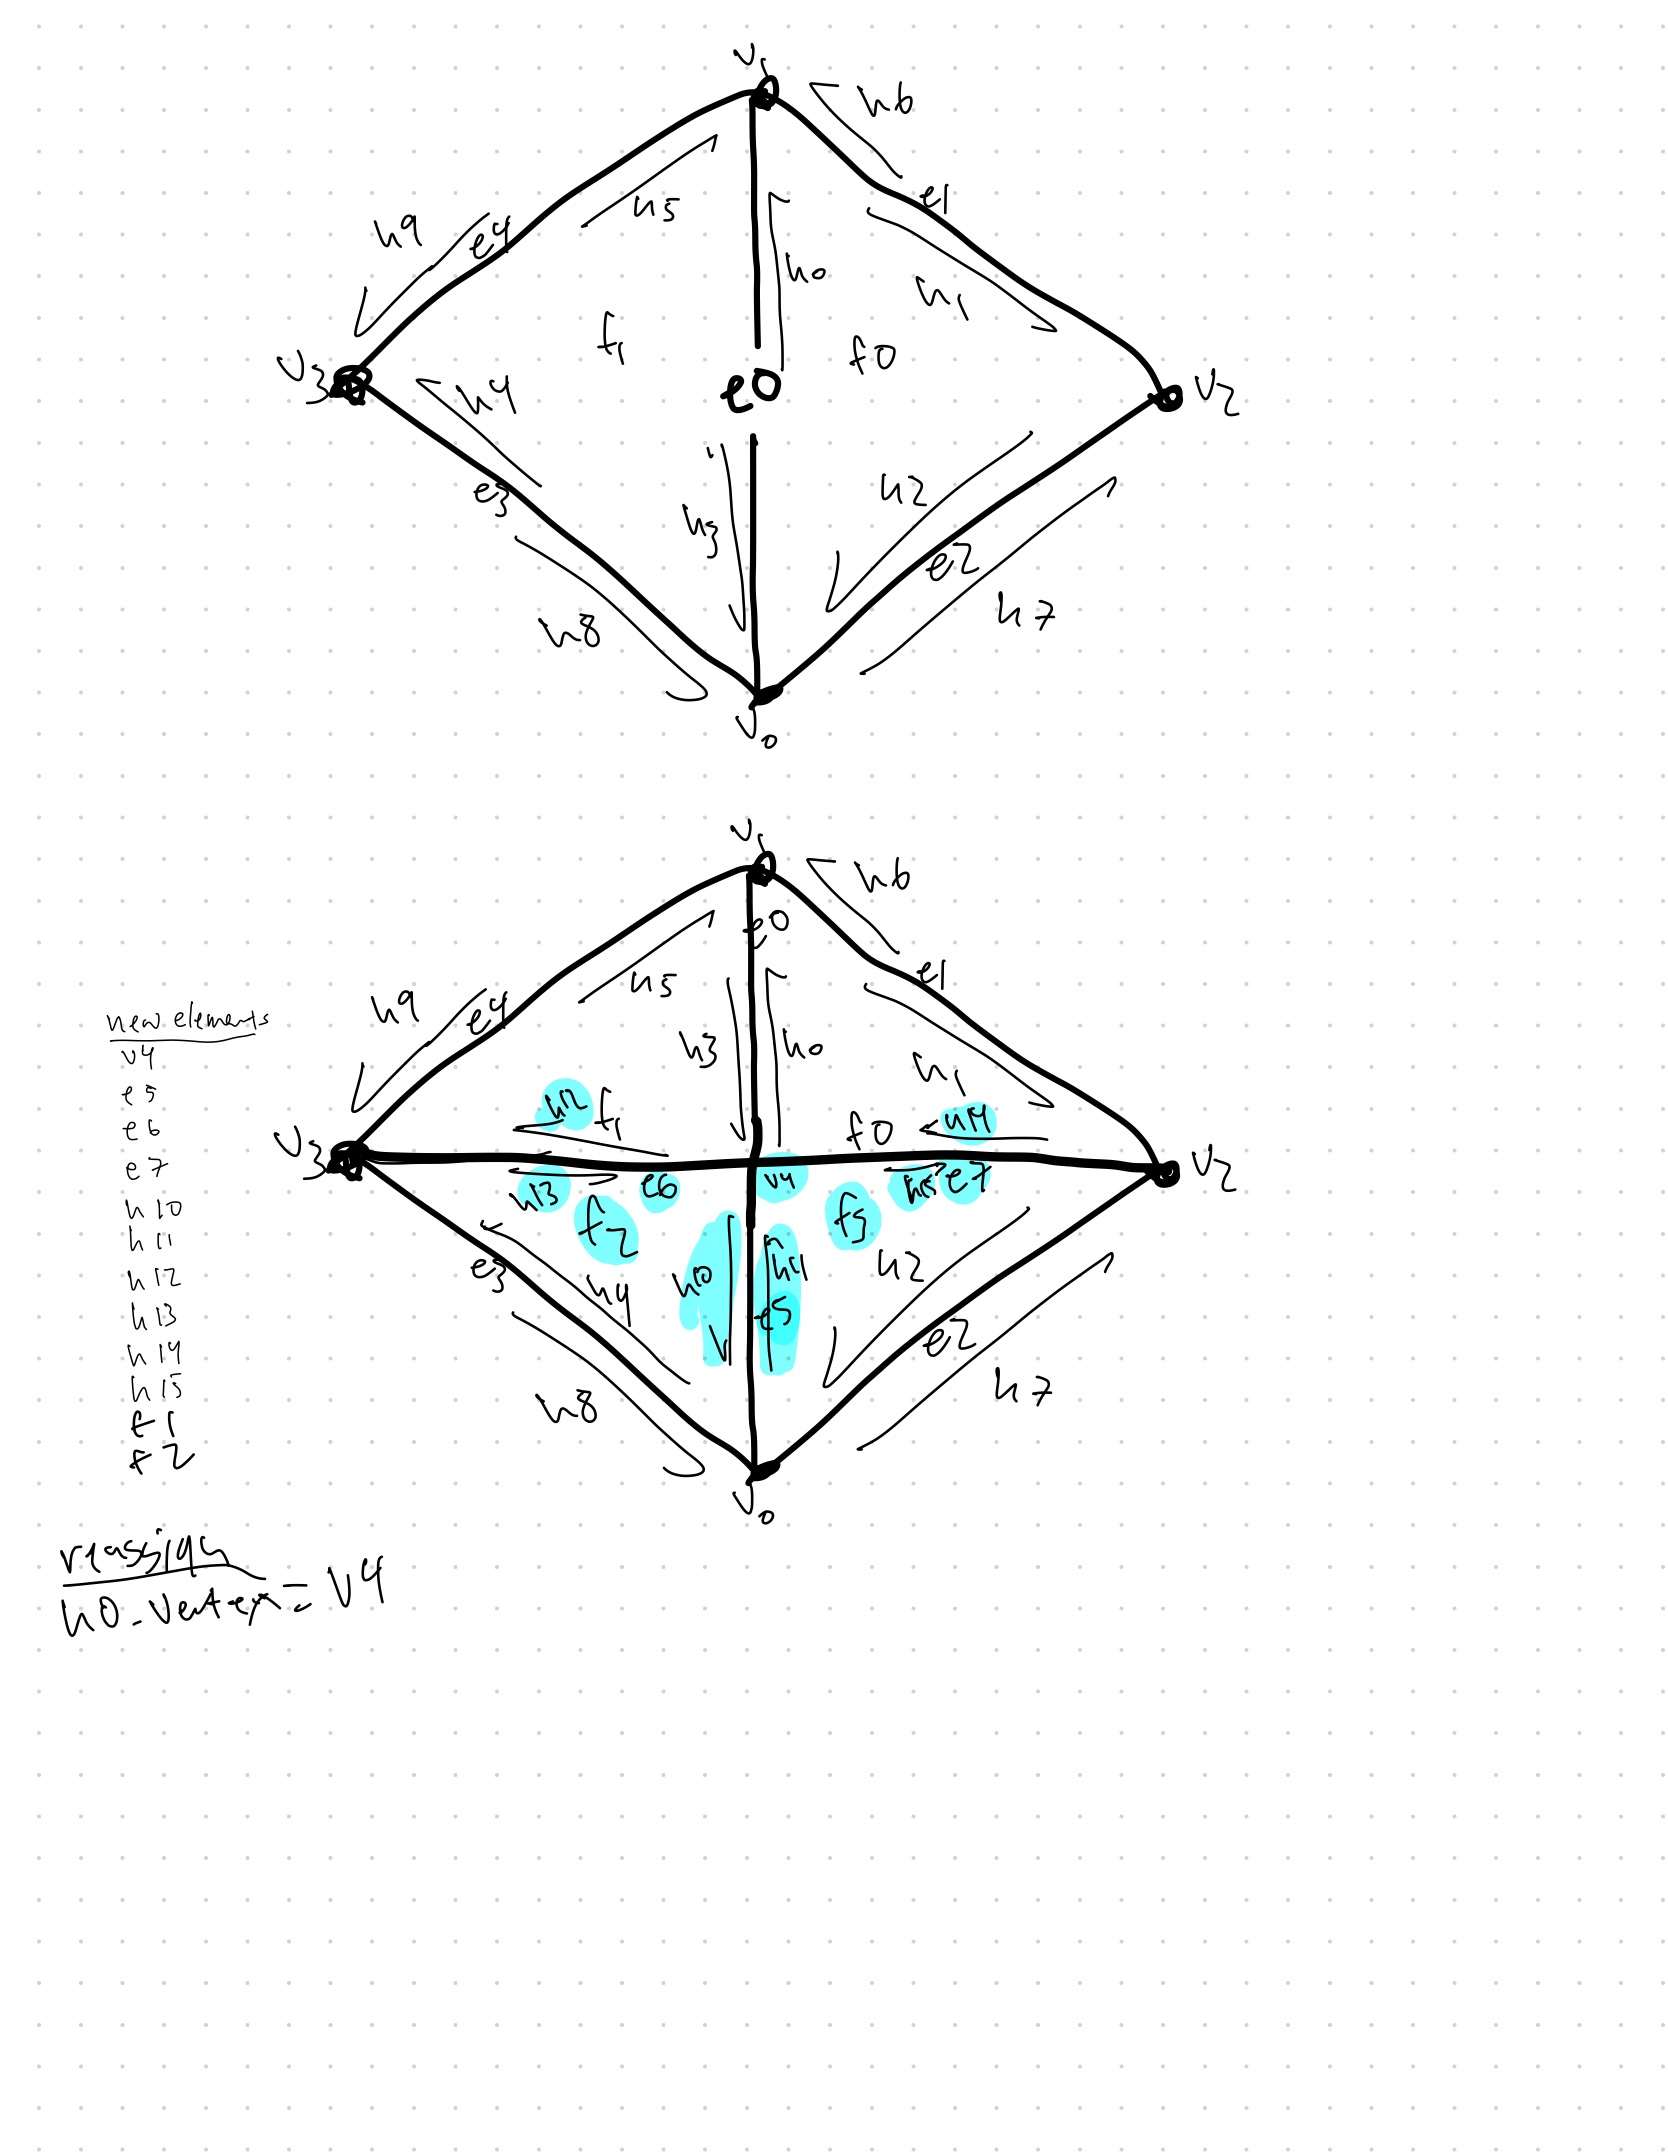 v1
h6
e1
h9
e4
h5
h0
h1
f1
f0
v3
h4
e0
v2
e3
h3
h2
e2
h8
h7
v0
v1
h6
e0
e1
h9
e4
h5
h3
h0
h1
h12
f1
f0
h14
v3
v2
h13
e6
v4
h15
e7
f2
f3
e3
h4
h10
h11
h2
e5
e2
h8
h7
v0
new elements
v4
e5
e6
e7
h10
h11
h12
h13
h14
h15
f1
f2
reassign
h0.vertex = v4